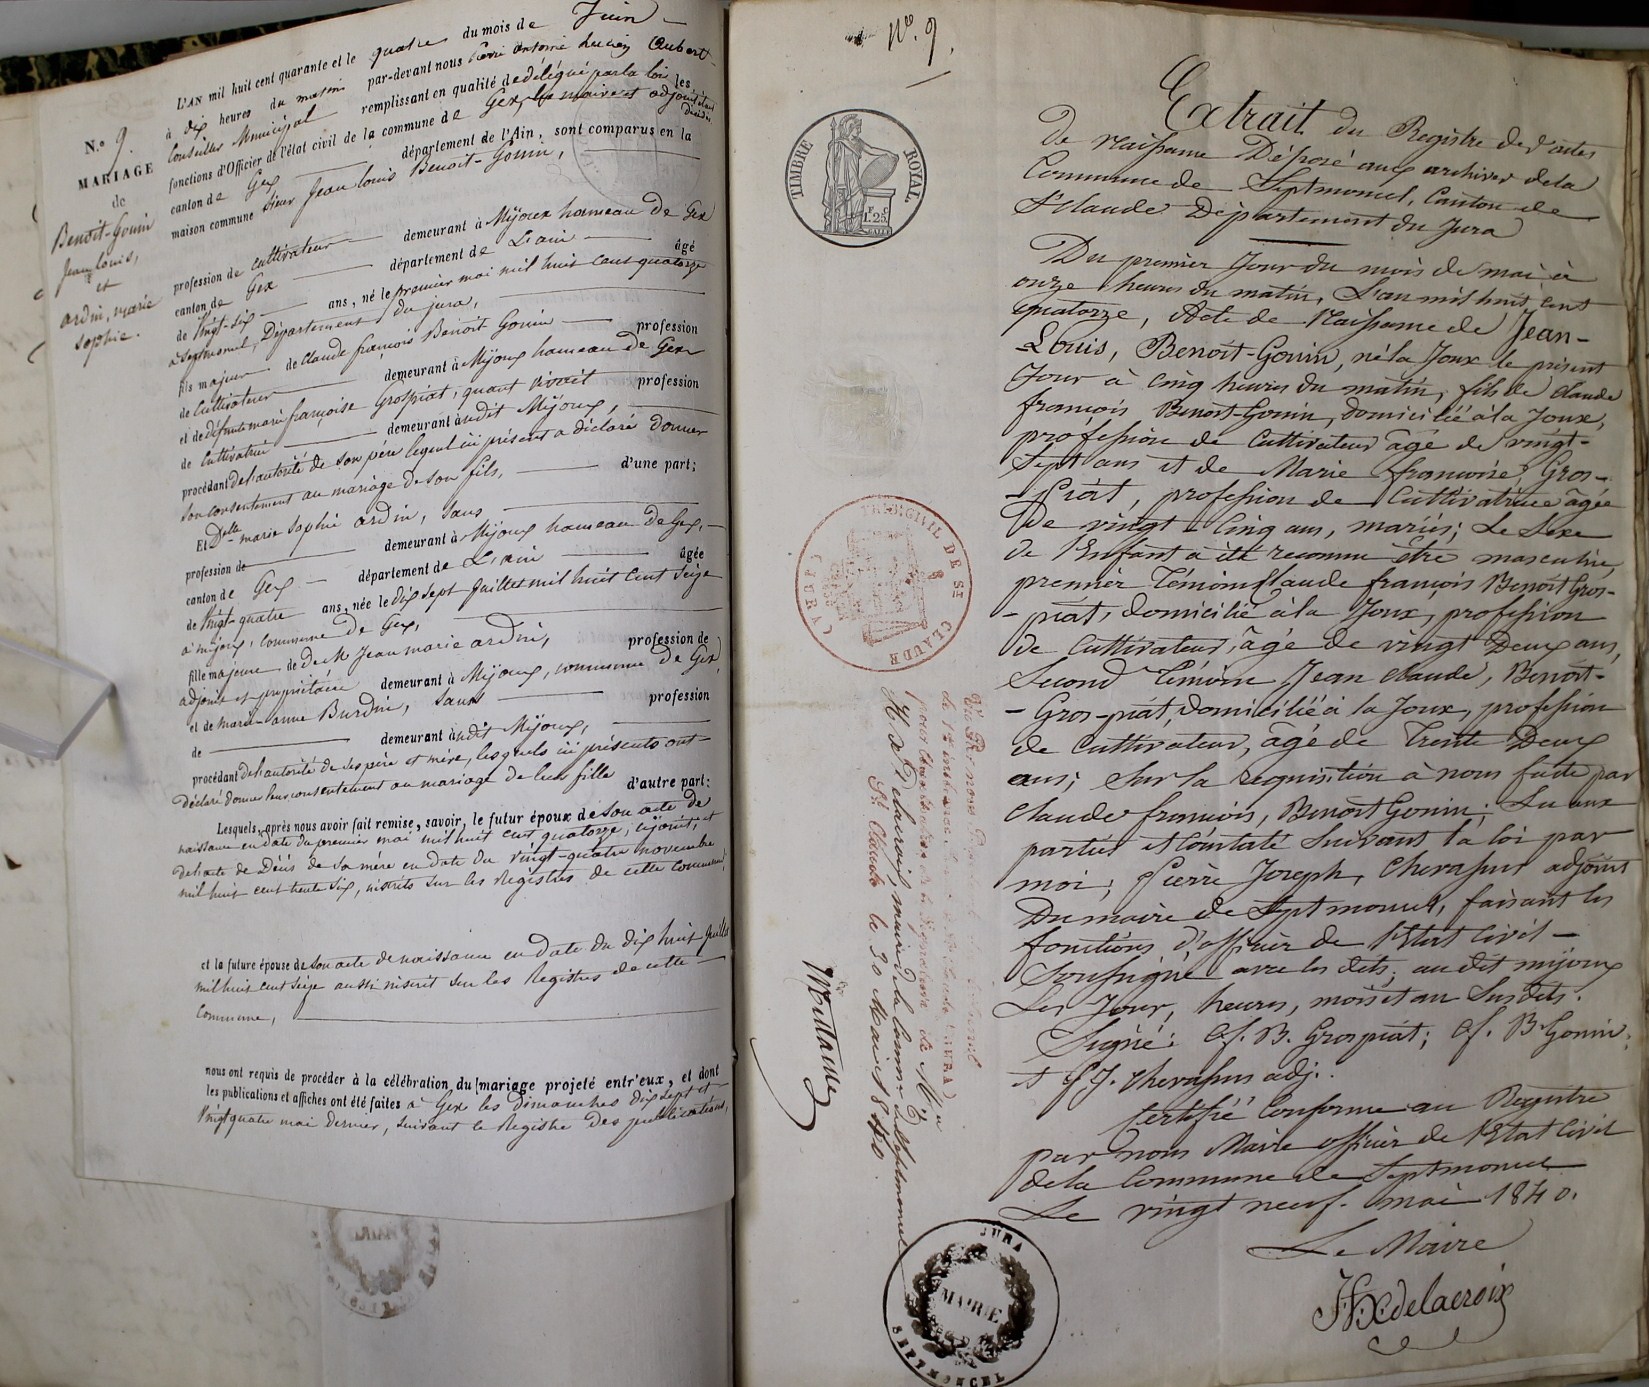 L'AN mil huit cent quarante et le quatre du mois de Juin
à dix heures du matin par-devant nous Pierre Antoine Lucien Aubert
Conseiller Municipal remplissant en qualité de délégué par la loi les
fonctions d'Officier de l'état civil de la commune de Gex, le maire et adjoint étant
canton de Gex département de l'Ain, sont comparus en la
maison commune sieur Jean louis Benoit-Gonin,
N.º 9.
MARIAGE
de
Benoît-Gonin
Jean louis,
et
ardin, marie
sophie.
profession de cultivateur demeurant à Mijoux hameau de Gex
canton de Gex département de L'ain âgé
de Vingt-six ans, né le premier mai mil huit cent quatorze
à Septmoncel, Département du jura,
fils majeur de Claude françois Benoit Gonin profession
de Cultivateur demeurant à Mijoux hameau de Gex
et de défunte marie françoise Grospiat, quant vivait profession
de Cultivatrice demeurant à udit Mijoux,
procédant de l'autorité de son père lequel ici présent a déclaré donner
son consentement au mariage de son fils, d'une part;
Et Dlle marie sophie ardin, sans
profession de demeurant à Mijoux hameau de Gex,
canton de Gex département de L'ain âgée
de Vingt-quatre ans, née le dix sept juillet mil huit cent seize
à mijoux, commune de Gex,
fille majeure de de Mr Jean marie ardin, profession de
adjoint et propriétaire demeurant à Mijoux, commune de Gex
et de marie-anne Burdin, sans profession
de demeurant à udit Mijoux,
procédant de l'autorité de ses père et mère, lesquels ici présents ont
déclaré donner leur consentement au mariage de leur fille d'autre part:
Lesquels, après nous avoir fait remise, savoir, le futur époux de son acte de
naissance en date du premier mai mil huit cent quatorze, ci joint, et
de l'acte de Décès de sa mère en date du vingt-quatre novembre
mil huit cent trente six, inscrits sur les Registres de cette commune,
et la future épouse de son acte de naissance en date du dix huit juillet
mil huit cent seize aussi inscrit sur les Registres de cette
Commune,
nous ont requis de procéder à la célébration du mariage projeté entr'eux, et dont
les publications et affiches ont été faites à Gex les dimanches dix sept et
Vingt quatre mai dernier, suivant le Registre des publications,
Nº. 9.
TIMBRE ROYAL
1F.25C
Extrait du Registre de d'actes
de Naissance Déposé aux archives de la
Commune de Septmoncel, Canton de
St Claude Département du Jura
Du premier Jour du mois de mai à
onze heures du matin, L'an mil huit cent
quatorze, Acte de Naissance de Jean-
Louis, Benoît-Gonin, né la Joux le présent
Jour à cinq heures du matin, fils de claude
françois Benoît-Gonin, domicilié à la Joux,
profession de Cultivateur âgé de vingt-
sept ans et de Marie françoise, Gros-
-piat, profession de Cultivatrice âgée
de vingt-cinq ans, mariés; Le Sexe
de l'Enfant a été reconnu être masculin,
premier Témoin Claude françois Benoît Gros-
-piat, domicilié à la Joux, profession
de Cultivateur, âgé de vingt Deux ans,
Second Témoin Jean claude, Benoît-
-Gros-piat, domicilié à la Joux, profession
de Cultivateur, âgé de Trente Deux
ans; Sur la requisition à nous faite par
claude françois, Benoît Gonin; Lu aux
parties et Constaté Suivant la loi par
moi, Pierre Joseph, Chevassus adjoint
Du maire de Septmoncel, faisant les
fonctions d'officier de l'Etat Civil
Soussigné avec les dits, au dit mijoux
Les Jour, heures, mois et an Susdits.
Signé: Cf. B. Grospiat; Cf. B Gonin;
et P J. Chevassus adj.
Certifié Conforme au Registre
par nous Maire officier de l'Etat Civil
de la Commune de Septmoncel
Le vingt neuf. mai 1840.
Le Maire
Delacroix
TRIB. CIVIL DE ST CLAUDE (JURA)
Vu Par nous
de 1re instance (JURA)
pour légalisation de la Signature de Mr
Delacroix, maire de la Commune de Septmoncel
St Claude le 30 Mai 1840.
JURA
MAIRIE
SEPTMONCEL